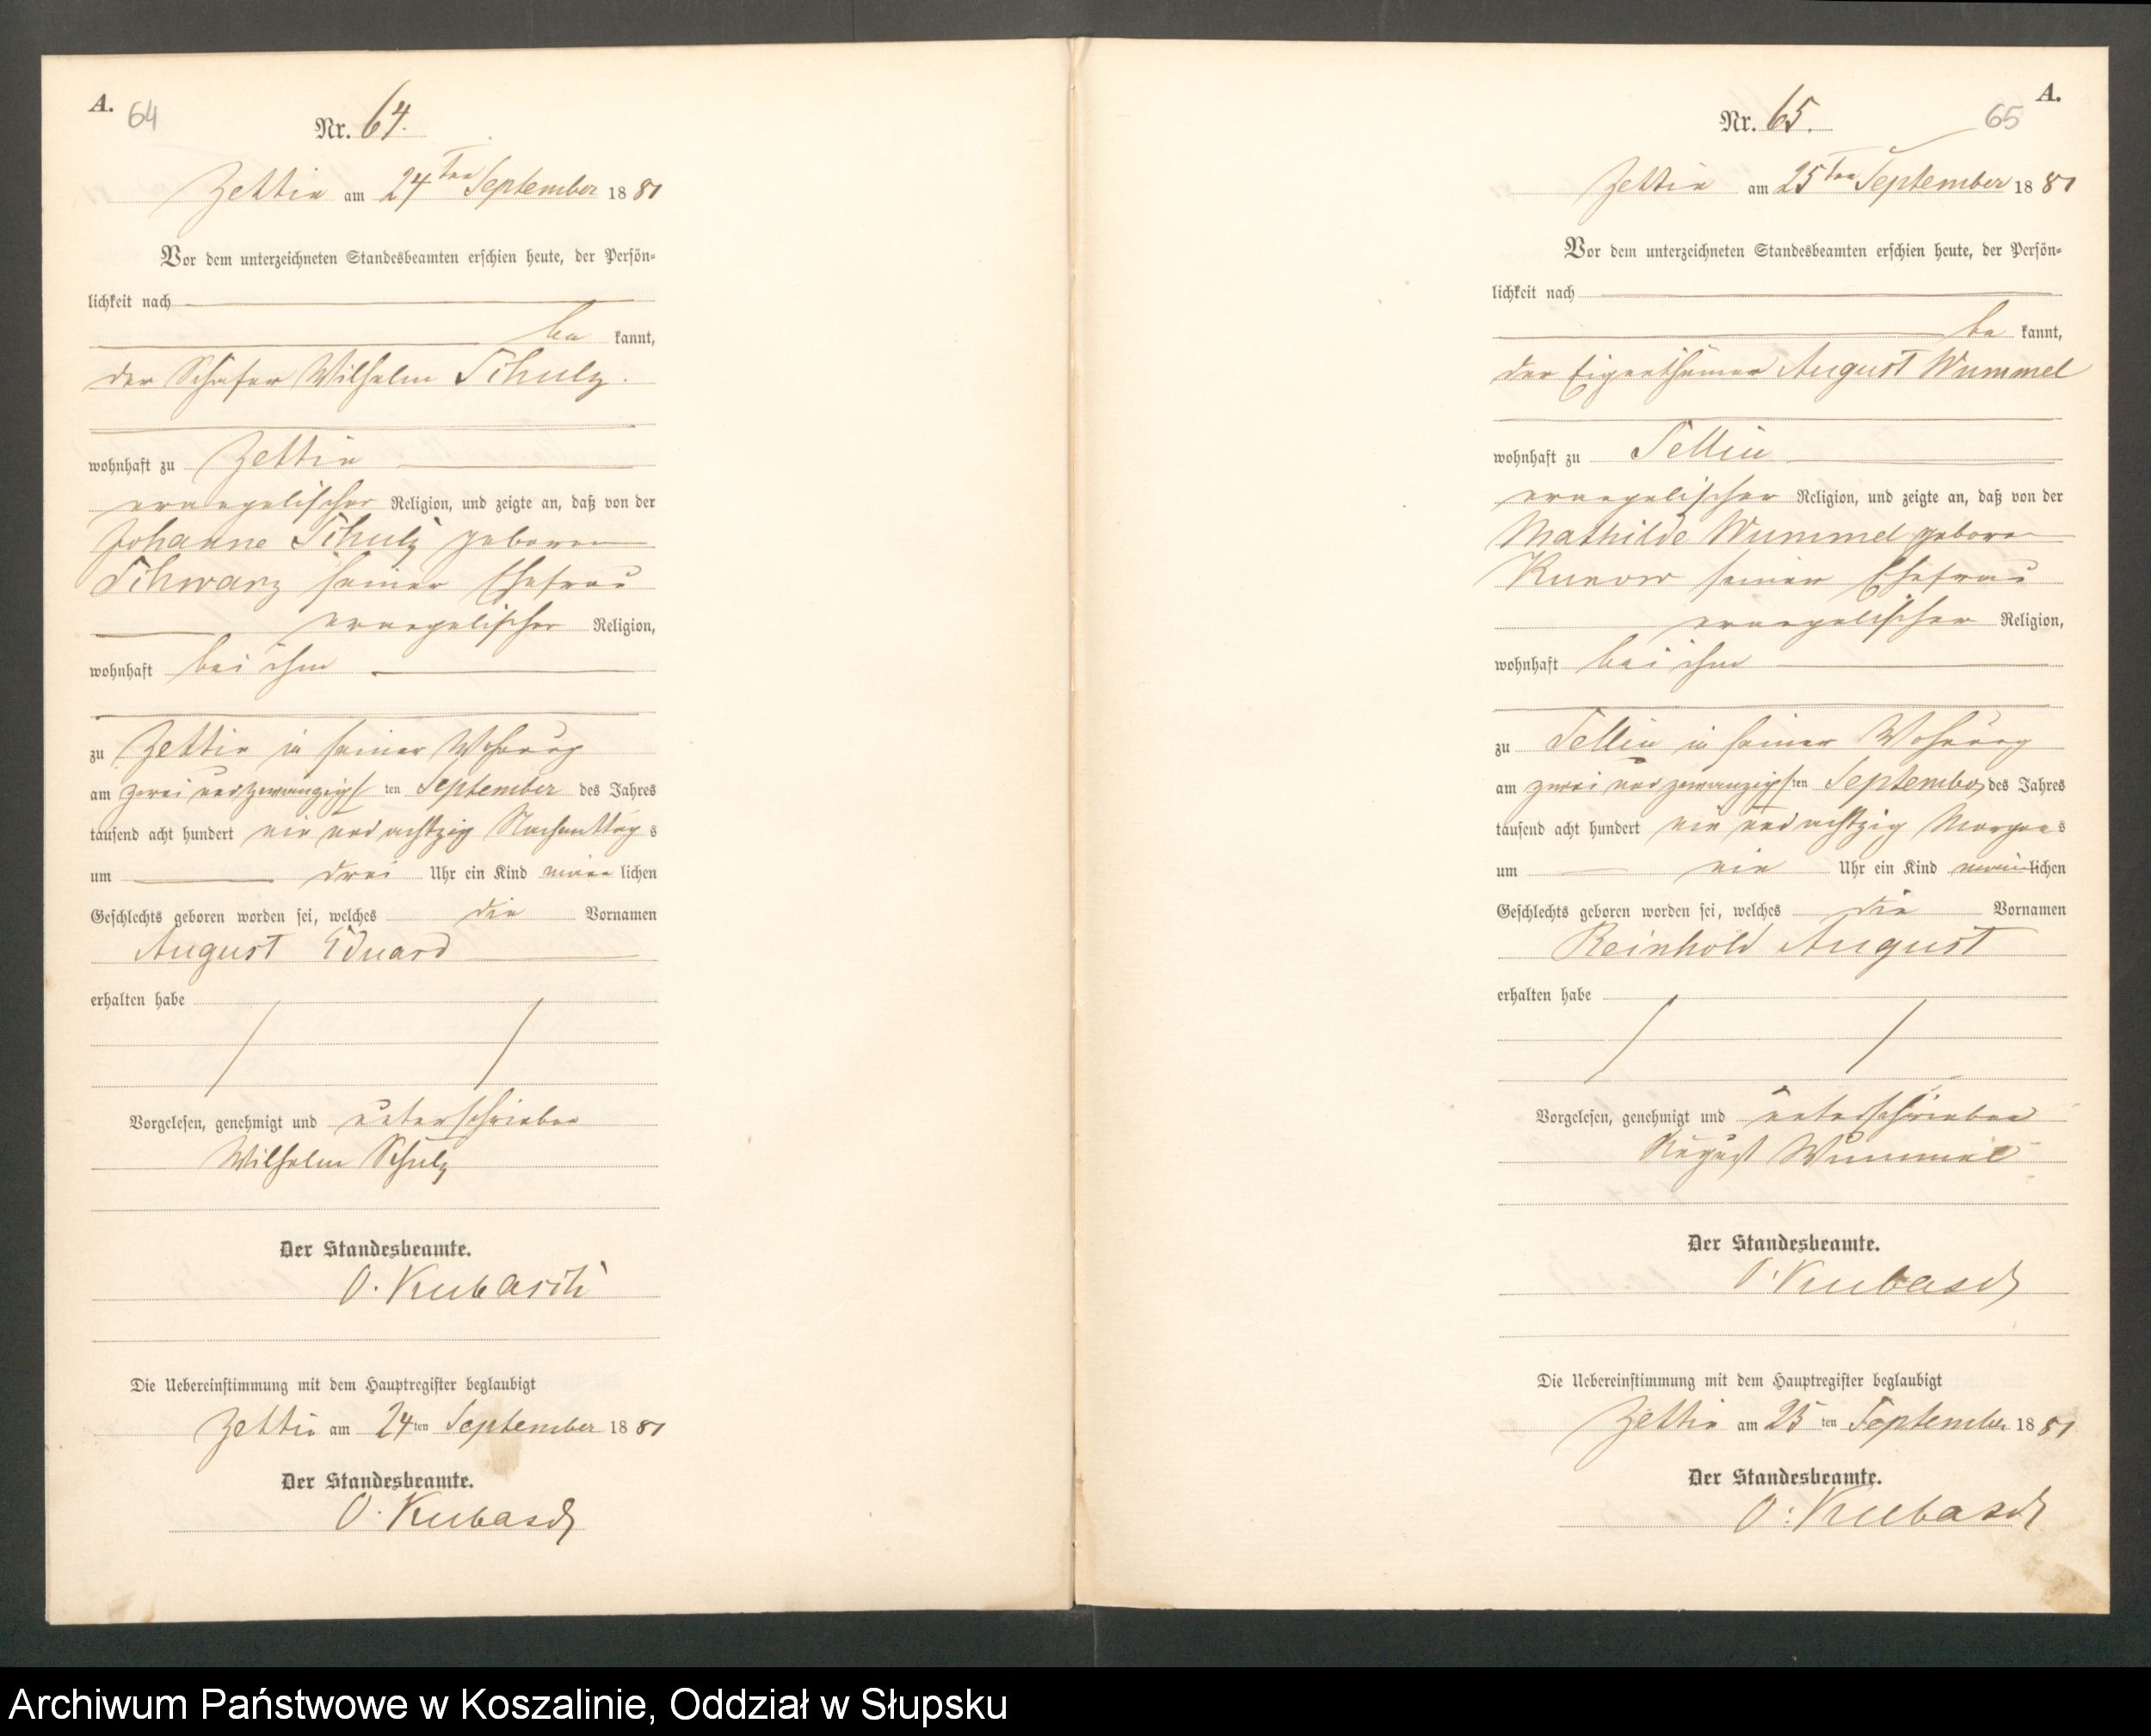 A.
64
Nr. 64.
Zettin am 24ten September 1881
Vor dem unterzeichneten Standesbeamten erschien heute, der Persön-
lichkeit nach
be kannt,
der Schäfer Wilhelm Schulz.
wohnhaft zu Zettin
evangelischer Religion, und zeigte an, daß von der
Johanne Schulz geborenen
Schwarz seiner Ehefrau
evangelischer Religion,
wohnhaft bei ihm
zu Zettin in seiner Wohnung
am zwei und zwanzigsten September des Jahres
tausend acht hundert ein und achtzig Nachmittags
um drei Uhr ein Kind männlichen
Geschlechts geboren worden sei, welches die Vornamen
August Eduard
erhalten habe
Vorgelesen, genehmigt und unterschrieben
Wilhelm Schulz
Der Standesbeamte.
O. Kubasch
Die Uebereinstimmung mit dem Hauptregister beglaubigt
Zettin am 24ten September 1881
Der Standesbeamte.
O. Kubasch
A.
65
Nr. 65.
Zettin am 25ten September 1881
Vor dem unterzeichneten Standesbeamten erschien heute, der Persön-
lichkeit nach
be kannt,
der Eigenthümer August Wummel
wohnhaft zu Sellin
evangelischer Religion, und zeigte an, daß von der
Mathilde Wummel geboren
Kunow seiner Ehefrau
evangelischer Religion,
wohnhaft bei ihm
zu Sellin in seiner Wohnung
am zwei und zwanzigsten September des Jahres
tausend acht hundert ein und achtzig Morgens
um ein Uhr ein Kind männlichen
Geschlechts geboren worden sei, welches die Vornamen
Reinhold August
erhalten habe
Vorgelesen, genehmigt und unterschrieben
August Wummel
Der Standesbeamte.
O. Kubasch
Die Uebereinstimmung mit dem Hauptregister beglaubigt
Zettin am 25ten September 1881
Der Standesbeamte.
O. Kubasch
Archiwum Państwowe w Koszalinie, Oddział w Słupsku